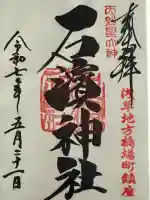 奉拝
浅草地方橋場町鎮座
石濱神社
令和七年五月二十一日